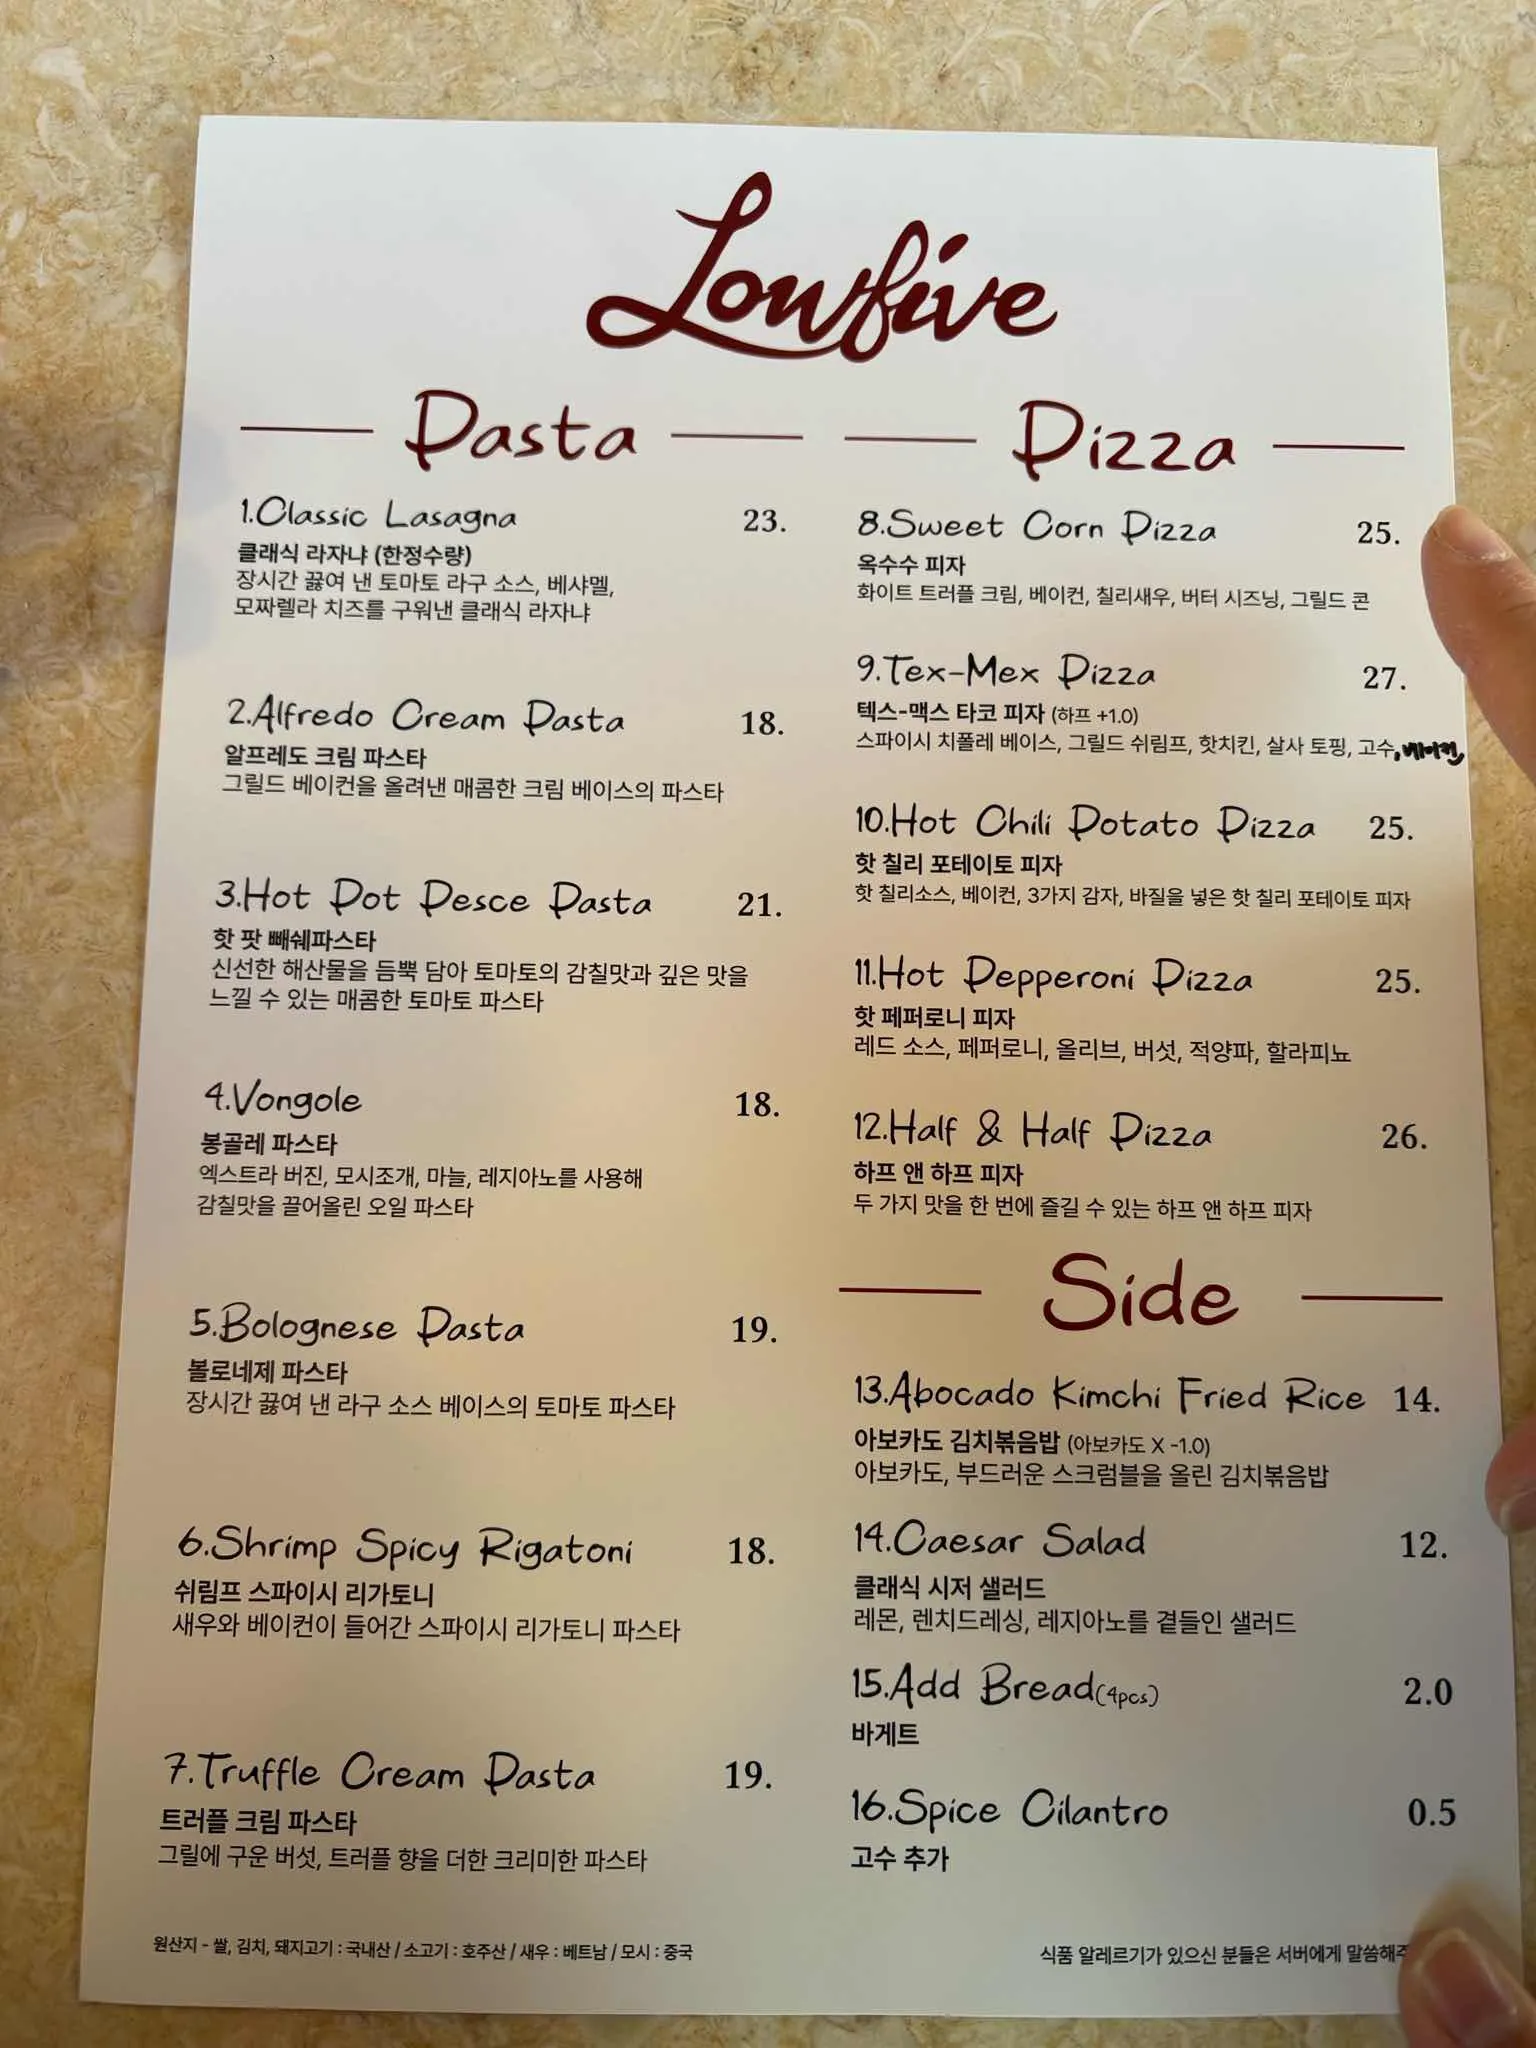 Lowfive
Pasta
1.Classic Lasagna 23.
클래식 라자냐 (한정수량)
장시간 끓여 낸 토마토 라구 소스, 베샤멜,
모짜렐라 치즈를 구워낸 클래식 라자냐
2.Alfredo Cream Pasta 18.
알프레도 크림 파스타
그릴드 베이컨을 올려낸 매콤한 크림 베이스의 파스타
3.Hot Pot Pesce Pasta 21.
핫 팟 빼쉐파스타
신선한 해산물을 듬뿍 담아 토마토의 감칠맛과 깊은 맛을
느낄 수 있는 매콤한 토마토 파스타
4.Vongole 18.
봉골레 파스타
엑스트라 버진, 모시조개, 마늘, 레지아노를 사용해
감칠맛을 끌어올린 오일 파스타
5.Bolognese Pasta 19.
볼로네제 파스타
장시간 끓여 낸 라구 소스 베이스의 토마토 파스타
6.Shrimp Spicy Rigatoni 18.
쉬림프 스파이시 리가토니
새우와 베이컨이 들어간 스파이시 리가토니 파스타
7.Truffle Cream Pasta 19.
트러플 크림 파스타
그릴에 구운 버섯, 트러플 향을 더한 크리미한 파스타
Pizza
8.Sweet Corn Pizza 25.
옥수수 피자
화이트 트러플 크림, 베이컨, 칠리새우, 버터 시즈닝, 그릴드 콘
9.Tex-Mex Pizza 27.
텍스-맥스 타코 피자 (하프 +1.0)
스파이시 치폴레 베이스, 그릴드 쉬림프, 핫치킨, 살사 토핑, 고수, 베이컨
10.Hot Chili Potato Pizza 25.
핫 칠리 포테이토 피자
핫 칠리소스, 베이컨, 3가지 감자, 바질을 넣은 핫 칠리 포테이토 피자
11.Hot Pepperoni Pizza 25.
핫 페퍼로니 피자
레드 소스, 페퍼로니, 올리브, 버섯, 적양파, 할라피뇨
12.Half & Half Pizza 26.
하프 앤 하프 피자
두 가지 맛을 한 번에 즐길 수 있는 하프 앤 하프 피자
Side
13.Abocado Kimchi Fried Rice 14.
아보카도 김치볶음밥 (아보카도 X -1.0)
아보카도, 부드러운 스크럼블을 올린 김치볶음밥
14.Caesar Salad 12.
클래식 시저 샐러드
레몬, 렌치드레싱, 레지아노를 곁들인 샐러드
15.Add Bread(4pcs) 2.0
바게트
16.Spice Cilantro 0.5
고수 추가
원산지 - 쌀, 김치, 돼지고기 : 국내산 / 소고기 : 호주산 / 새우 : 베트남 / 모시 : 중국
식품 알레르기가 있으신 분들은 서버에게 말씀해주